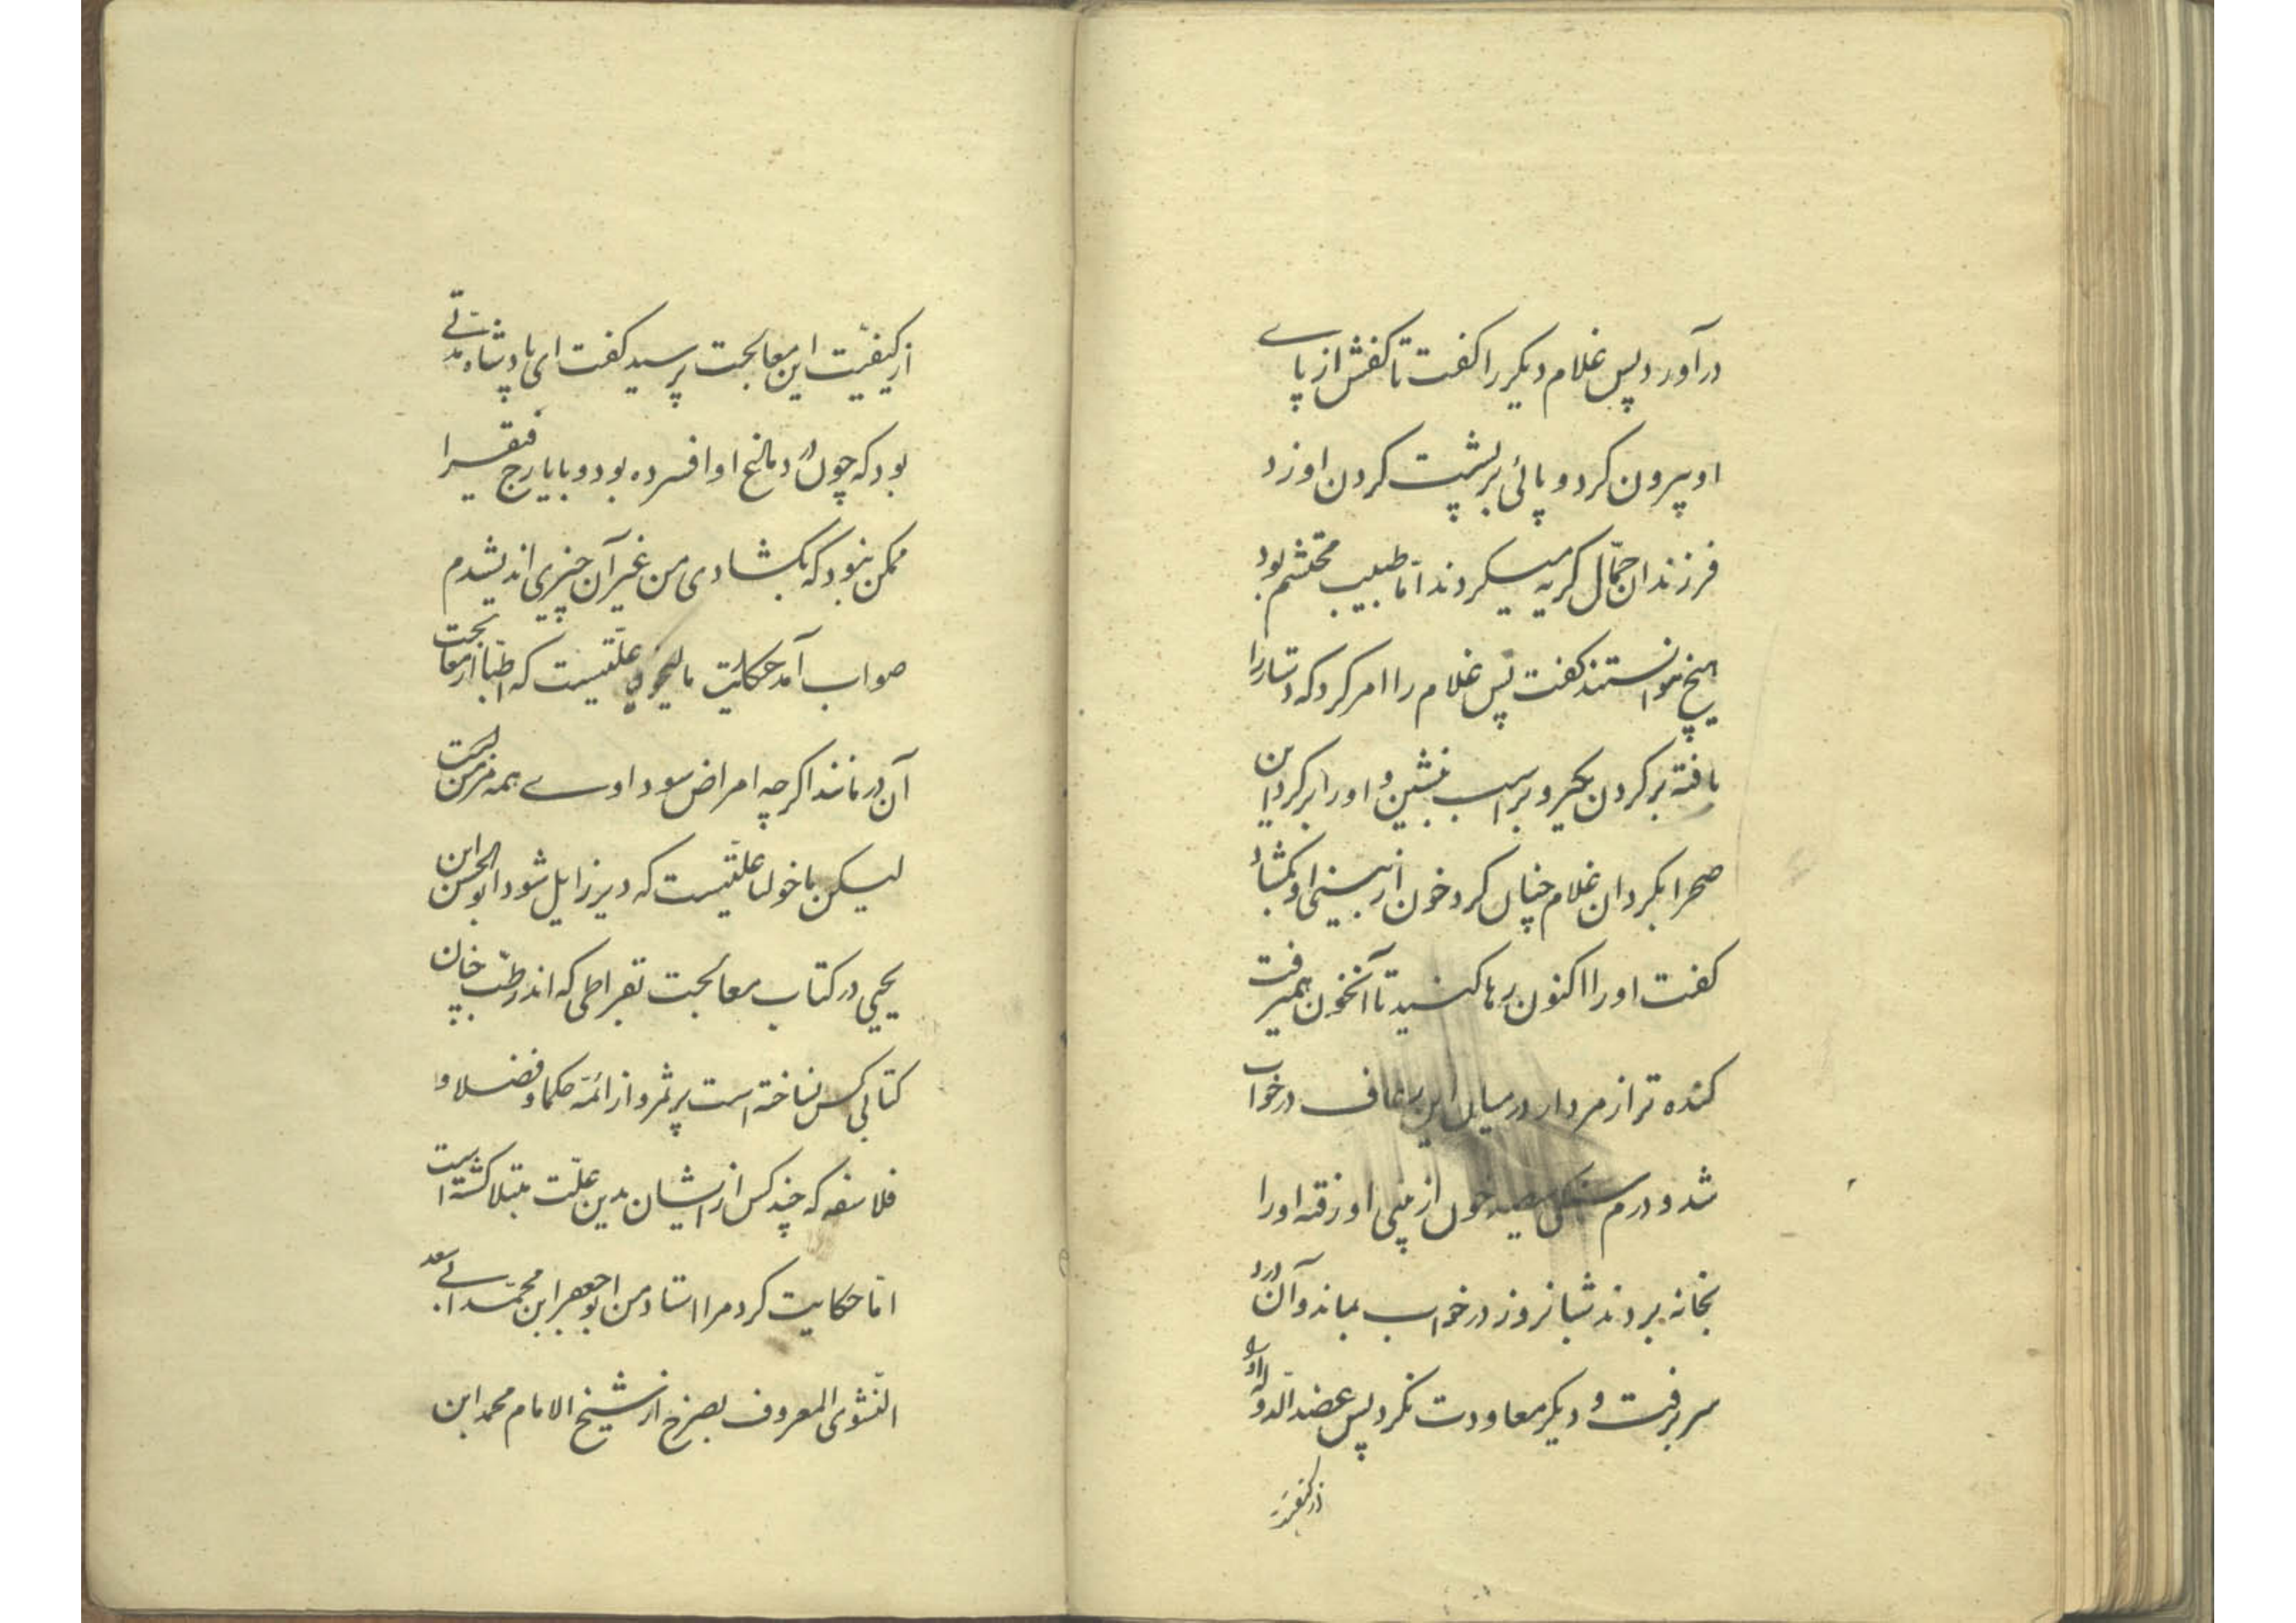 درآورد پس غلام دیکر را کفت تا کفش از پاے
او بیرون کرد و پائی بر پشت کردن او زد
فرزندان حمّال کریه میکردند امّا طبیب محتشم بود
هیچ نتوانستند کفت پس غلام را امر کرد که دستار را
بافته بر کردن بکیر و بر اسب بنشین و او را بر کرد این
صحرا بکردان غلام چنان کرد خون از بینی او بکشاد
کفت او را اکنون رها کنید تا آنخون همیرفت
کنده تر از مردار در میان این رعاف در خواب
شد و درم سنکی سیصد خون از بینی او رفته او را
بخانه بردند شبانروز در خواب بماند و آن درد
سر برفت و دیکر معاودت نکرد پس عضد الدوله او را
از کیفیت
از کیفیّت این معالجت پرسید کفت ای پادشاه مدّتے
بود که چون در دماغ او افسرده بود و بایارج فیقرا
ممکن نبود که بکشادی من غیر آن چیزی اندیشدم
صواب آمد حکایت مالیخولیا علّتیست که اطبّا از معالجت
آن درمانند اکرچه امراض سوداوے همه مزمن است
لیکن ماخولیا علّتیست که دیر زایل شود ابو الحسن ابن
یحیی در کتاب معالجت بقراطی که اندر طب چنان
کتابی کس نساخته است پر ثمر و از ائمّه حکما و فضلا و
فلاسفه که چند کس از ایشان بدین علّت مبتلا کشته است
امّا حکایت کرد مرا استاد من ابو جعفر ابن محمّد ابے سعد
النّشوی المعروف بصرخ از شیخ الامام محمد ابن